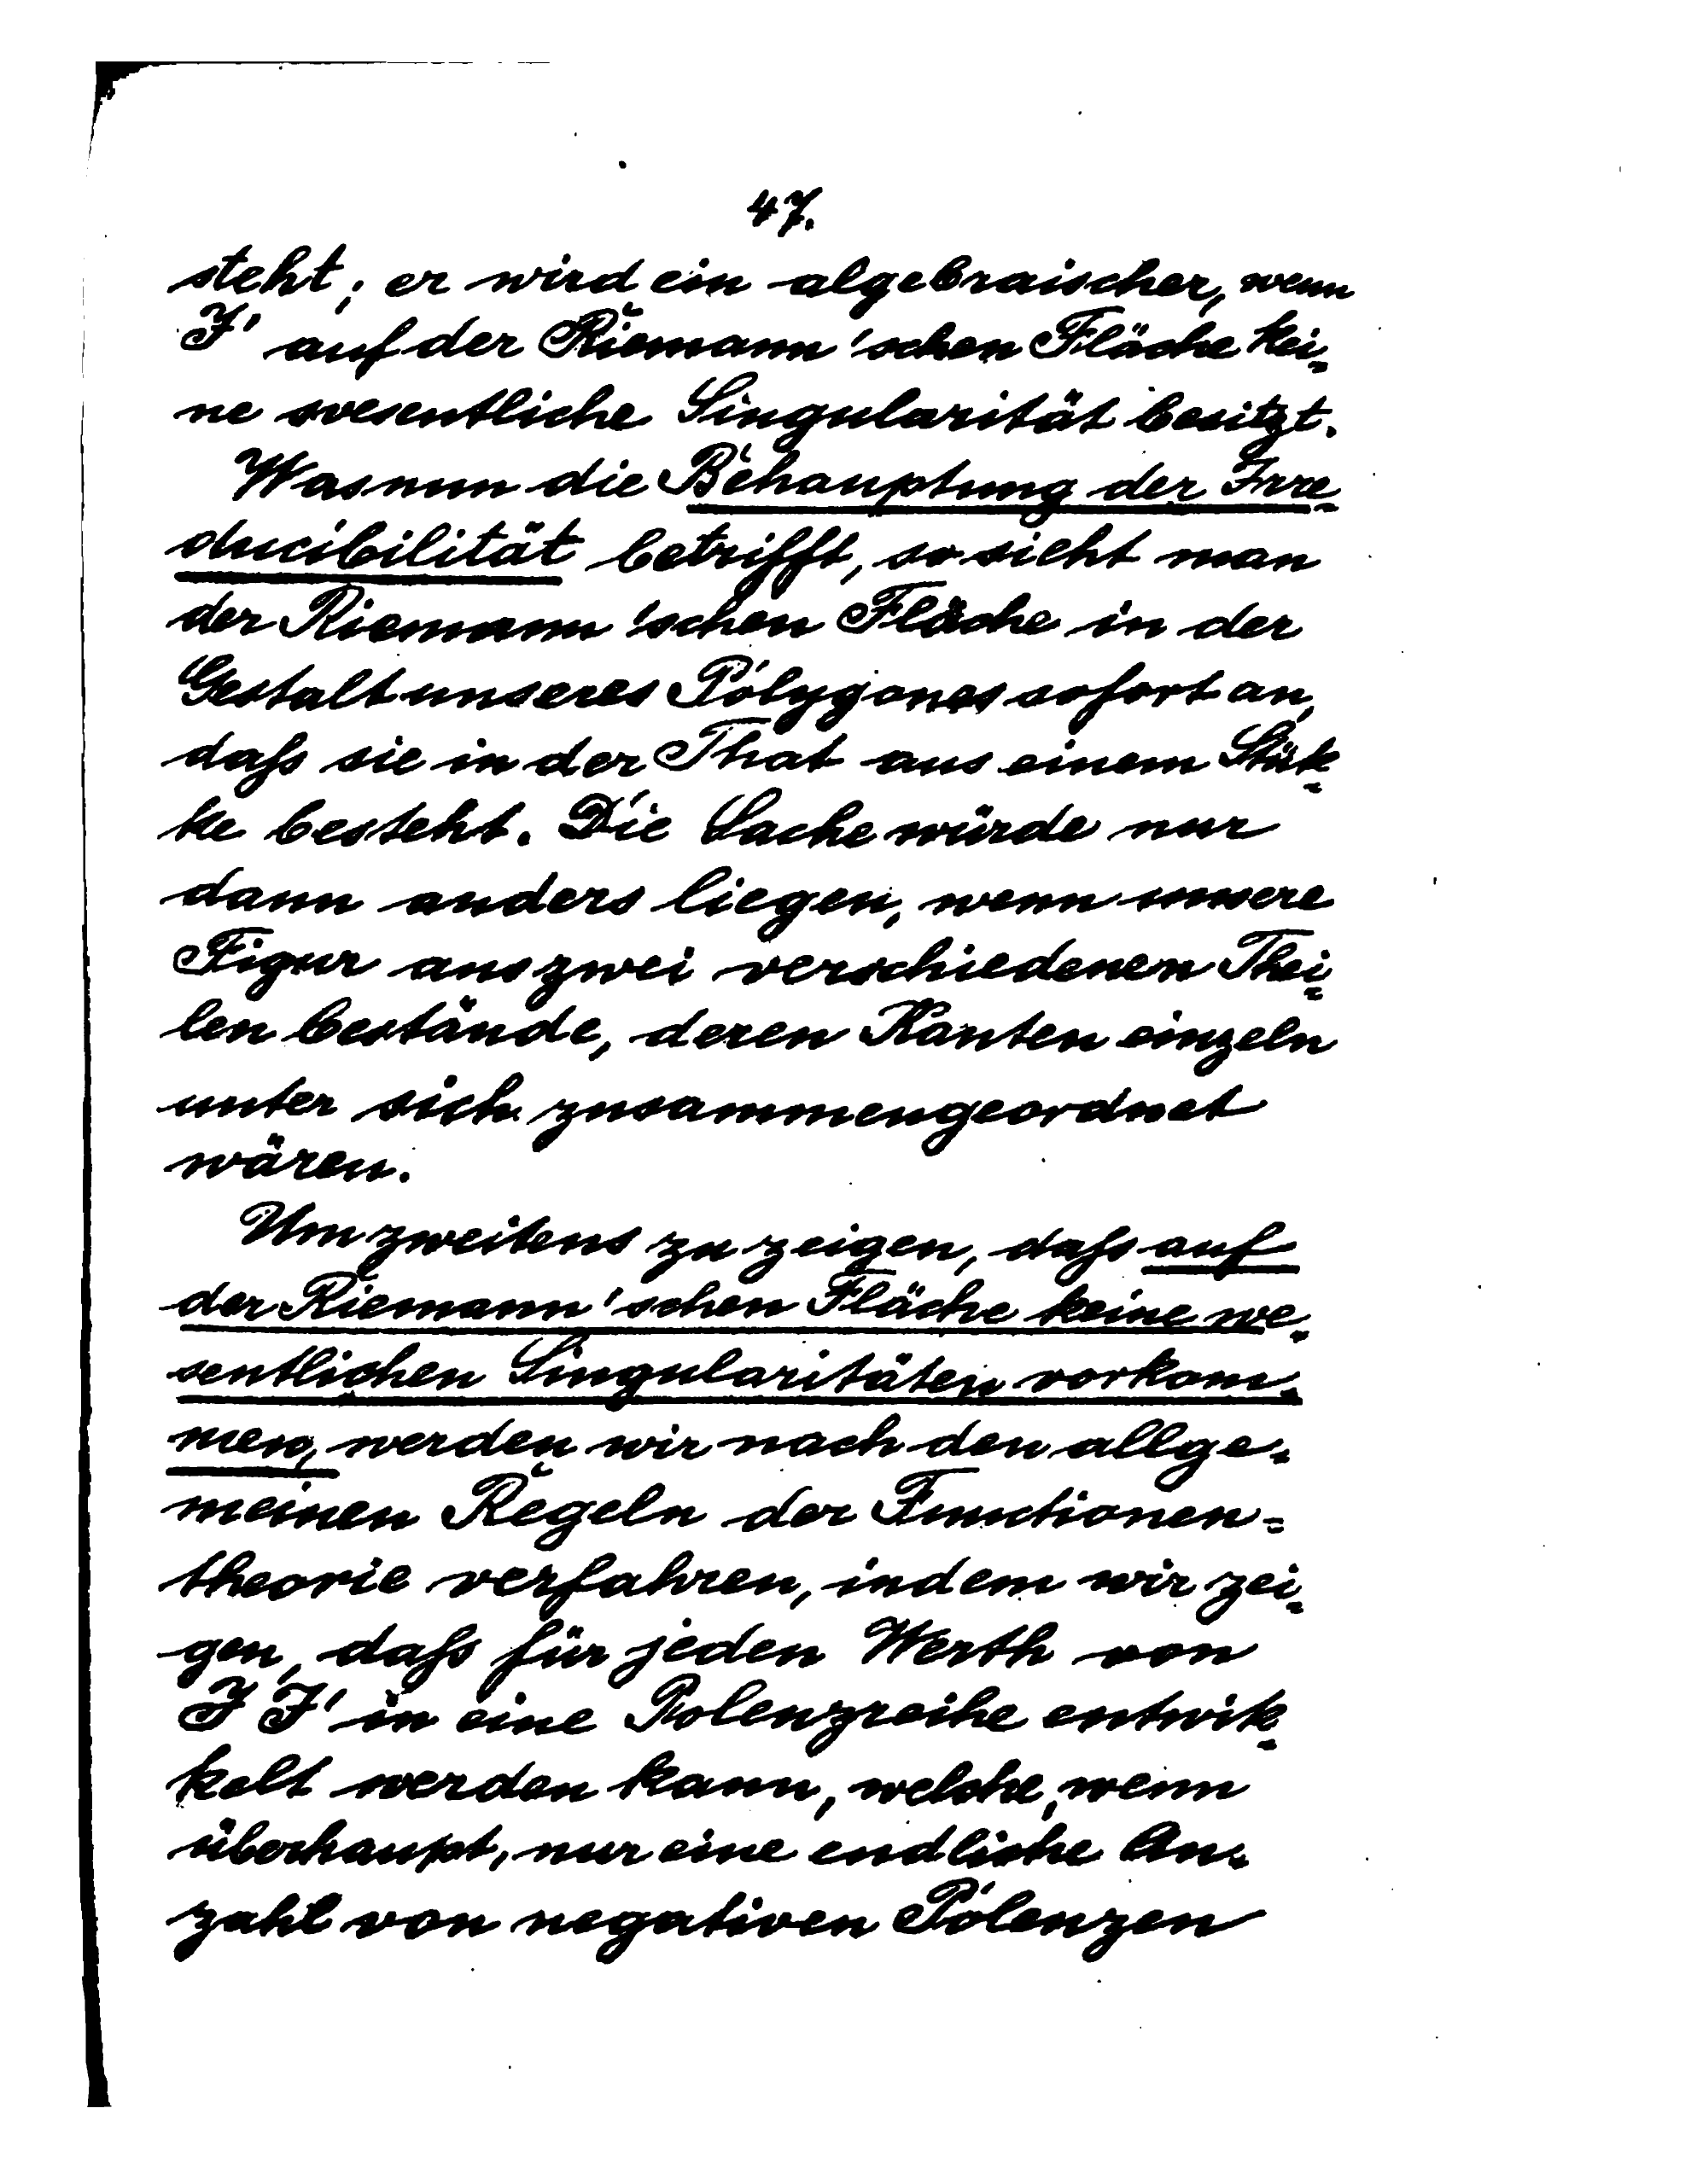 47.
steht; er wird ein algebraischer, wenn
J' auf der Riemann'schen Fläche kei-
ne wesentliche Singularität besitzt.
Was nun die Behauptung der Irre-
ducibilität betrifft, so sieht man
der Riemann'schen Fläche in der
Gestalt unseres Polygones sofort an,
daß sie in der That aus einem Stük-
ke besteht. Die Sache würde nur
dann anders liegen, wenn unsere
Figur aus zwei verschiedenen Thei-
len bestände, deren Kanten einzeln
unter sich zusammengeordnet
wären.
Um zweitens zu zeigen, daß auf
der Riemann'schen Fläche keine we-
sentlichen Singularitäten vorkom-
men, werden wir nach den allge-
meinen Regeln der Functionen-
theorie verfahren, indem wir zei-
gen, daß für jeden Werth von
J J' in eine Potenzreihe entwik-
kelt werden kann, welche, wenn
überhaupt, nur eine endliche An-
zahl von negativen Potenzen